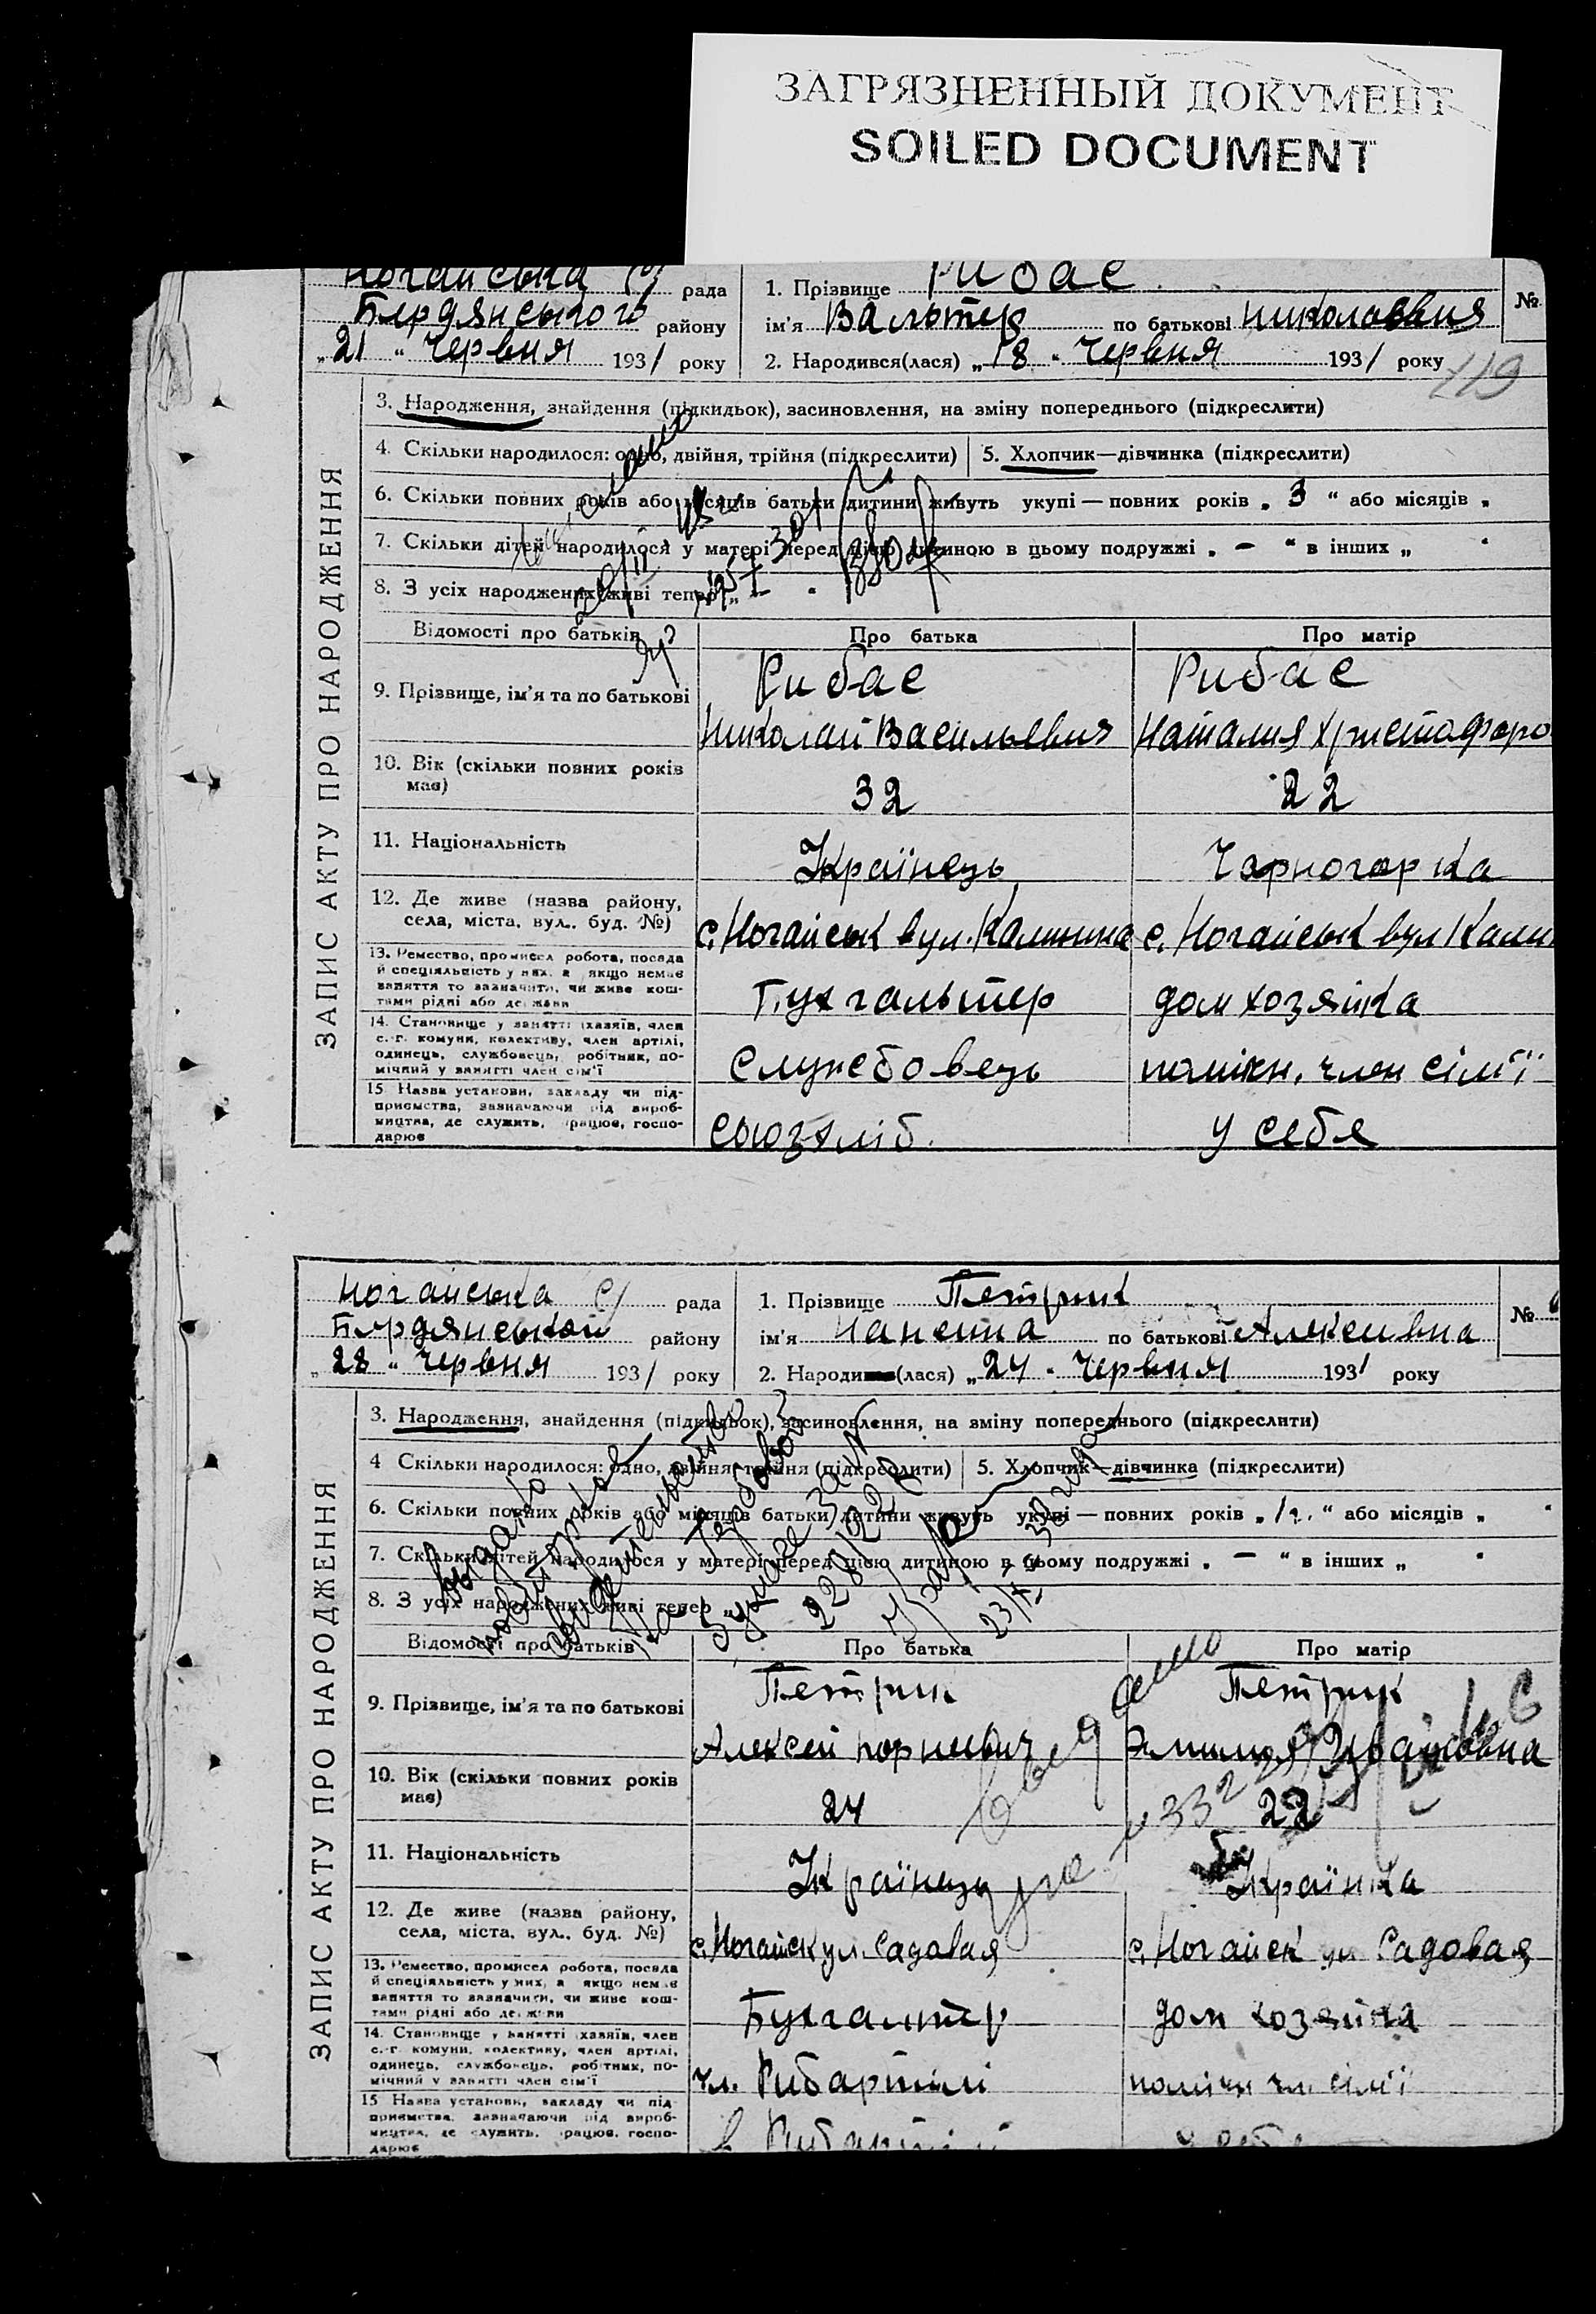 ЗАГРЯЗНЕННЫЙ ДОКУМЕНТ
SOILED DOCUMENT
Ногайська С/ рада
Бердянського району
„21“ Червня 1931 року
1. Прізвище Рибас
ім'я Вальтер по батькові Николаевич
2. Народився(лася) „18“ Червня 1931 року
№
119
ЗАПИС АКТУ ПРО НАРОДЖЕННЯ
3. Народження, знайдення (підкидьок), засиновлення, на зміну попереднього (підкреслити)
4. Скільки народилося: одно, двійня, трійня (підкреслити) 5. Хлопчик—дівчинка (підкреслити)
6. Скільки повних років або місяців батьки дитини живуть укупі — повних років „ 3 “ або місяців „
7. Скільки дітей народилося у матері перед цією дитиною в цьому подружжі „ — “ в інших „ “
8. З усіх народжених живі тепер „ — “
Відомості про батьків Про батька Про матір
9. Прізвище, ім'я та по батькові Рибас Рибас
Николай Васильевич Наталия Христофоро
10. Вік (скільки повних років має) 32 22
11. Національність Українець Чорногорка
12. Де живе (назва району, села, міста, вул., буд. №) с. Ногайськ вул. Калинина с. Ногайськ вул Кали
13. Ремество, промисел робота, посада й спеціяльність у них, а якщо немає заняття то зазначити, чи живе коштами рідні або держави Бухгальтер дом хозяйка
14. Становище у занятті (хазяїн, член с.-г. комуни, колективу, член артілі, одинець, службовець, робітник, помічний у занятті член сім'ї Службовець помічн. член сімї
15 Назва установи, закладу чи підприємства, зазначаючи рід виробництва, де служить, працює, господарює Союзхліб. у себе
Ногайська С/ рада
Бердянської району
„28“ Червня 1931 року
1. Прізвище Петрик
ім'я по батькові Алексеивна
2. Народи (лася) „24“ Червня 1931 року
№
ЗАПИС АКТУ ПРО НАРОДЖЕННЯ
3. Народження, знайдення (підкидьок), засиновлення, на зміну попереднього (підкреслити)
4 Скільки народилося: одно, двійня, трійня (підкреслити) 5. Хлопчик—дівчинка (підкреслити)
6. Скільки повних років або місяців батьки дитини живуть укупі — повних років „ 1 г. “ або місяців „ “
7. Скільки дітей народилося у матері перед цією дитиною в цьому подружжі „ — “ в інших „ “
8. З усіх народжених живі тепер „
Відомості про батьків Про батька Про матір
9. Прізвище, ім'я та по батькові Петрик Петрик
Алексей Корнеевич Эмилия
10. Вік (скільки повних років має) 24 22
11. Національність Українець Українка
12. Де живе (назва району, села, міста, вул., буд. №) с. Ногайск ул. Садовая с. Ногайск ул Садовая
13. Ремество, промисел, робота, посада й спеціяльність у них, а якщо немає заняття то зазначити, чи живе коштами рідні або держави Бухгалтер дом хозяйка
14. Становище у занятті (хазяїн, член с.-г. комуни, колективу, член артілі, одинець, службовець, робітник, помічний у занятті член сім'ї чл. Рибартілі помічн чл. сімї
15 Назва установи, закладу чи підприємства, зазначаючи рід виробництва, де служить, працює, господарює в Рибартілі у себе